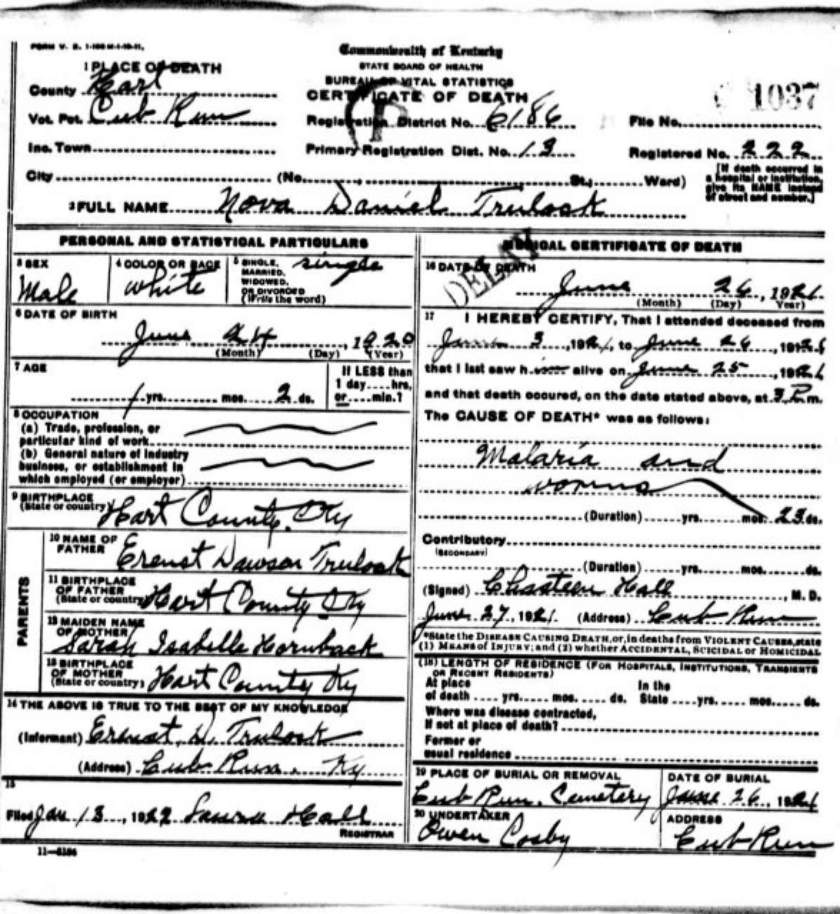 FORM V. S. 1-100 M-1-19-11.
Commonwealth of Kentucky
STATE BOARD OF HEALTH
BUREAU OF VITAL STATISTICS
CERTIFICATE OF DEATH
1 PLACE OF DEATH
County Hart
Vot. Pct. Cub Run
Registration District No. 6186
File No.
1037
Inc. Town
Primary Registration Dist. No. 13
Registered No. 222
City (No. St.; Ward)
[If death occurred in a hospital or institution, give its NAME instead of street and number.]
2 FULL NAME Nova Daniel Trulock
PERSONAL AND STATISTICAL PARTICULARS
3 SEX Male
4 COLOR OR RACE white
5 SINGLE, MARRIED, WIDOWED, OR DIVORCED (Write the word) single
6 DATE OF BIRTH
June 24, 1920
(Month) (Day) (Year)
7 AGE
1 yrs. mos. 2 ds.
If LESS than 1 day....hrs. or....min.?
8 OCCUPATION
(a) Trade, profession, or particular kind of work
(b) General nature of industry business, or establishment in which employed (or employer)
9 BIRTHPLACE (State or country) Hart County, Ky
PARENTS
10 NAME OF FATHER Erenst Dawson Trulock
11 BIRTHPLACE OF FATHER (State or country) Hart County Ky
12 MAIDEN NAME OF MOTHER Sarah Isabelle Hornback
13 BIRTHPLACE OF MOTHER (State or country) Hart County Ky
14 THE ABOVE IS TRUE TO THE BEST OF MY KNOWLEDGE
(Informant) Erenst D. Trulock
(Address) Cub Run. Ky
15
Filed Jan 13, 1922 Laura Hall
REGISTRAR
11-3184
MEDICAL CERTIFICATE OF DEATH
DELAY
16 DATE OF DEATH
June 26, 1921
(Month) (Day) Year)
17 I HEREBY CERTIFY, That I attended deceased from
June 3, 1921, to June 26, 1921
that I last saw him alive on June 25, 1921
and that death occured, on the date stated above, at 3 P. m.
The CAUSE OF DEATH* was as follows:
Malaria and
worms
(Duration) yrs. mos. 23 ds.
Contributory
(SECONDARY)
(Duration) yrs. mos. ds.
(Signed) Chasteen Hall M. D.
June 27, 1921. (Address) Cub Run
*State the DISEASE CAUSING DEATH, or, in deaths from VIOLENT CAUSES, state
(1) MEANS of INJURY; and (2) whether ACCIDENTAL, SUICIDAL or HOMICIDAL
(18) LENGTH OF RESIDENCE (FOR HOSPITALS, INSTITUTIONS, TRANSIENTS OR RECENT RESIDENTS)
At place of death yrs. mos. ds. In the State yrs. mos. ds.
Where was disease contracted, If not at place of death?
Former or usual residence
19 PLACE OF BURIAL OR REMOVAL
Cub Run. Cemetery
DATE OF BURIAL
June 26, 1921
20 UNDERTAKER
Owen Cosby
ADDRESS
Cub Run